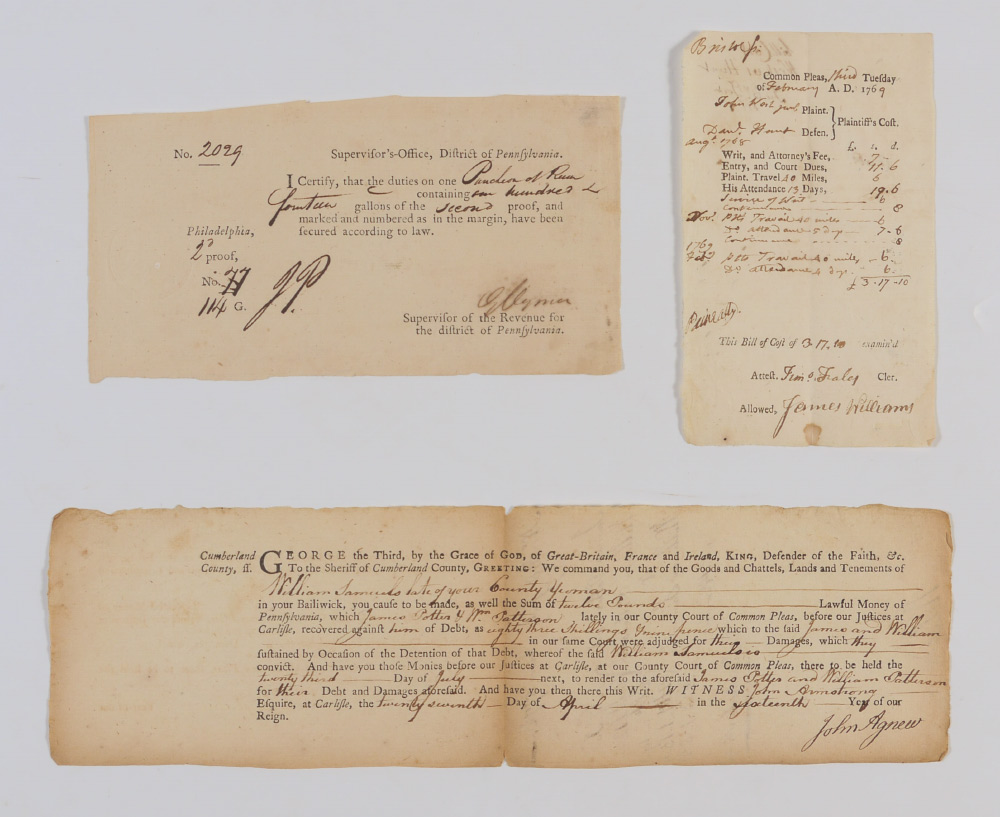 No. 2029 Supervisor's-Office, District of Pennsylvania.
I Certify, that the duties on one Puncheon of Rum
containing one hundred &
fourteen gallons of the second proof, and
marked and numbered as in the margin, have been
secured according to law.
Philadelphia,
2d proof,
No. 77
114 G.
JP
GClymer
Supervisor of the Revenue for
the district of Pennsylvania.
Bristol ss.
Common Pleas, third Tuesday
of February A. D. 1769
John Plaint.
Danl. Hunt Defen.
Plaintiff's Cost.
Augt. 1768
£. s. d.
Writ, and Attorney's Fee, 7 -
Entry, and Court Dues, 11 - 6
Plaint. Travel 40 Miles, 6
His Attendance 13 Days, 19 - 6
Service of Writ 6
Continuance 8
Nov. Ptts Travail 40 miles 6
Do. attendance 5 days 7 - 6
Continuance 8
1769
Feby. Ptts Travail 40 miles 6
Do. attendance 4 days 6
£ 3 - 17 - 10
This Bill of Cost of 3-17-10 examin'd
Attest. Timo. Fales Cler.
Allowed, James Williams
Cumberland County, ſſ.
GEORGE the Third, by the Grace of GOD, of Great-Britain, France and Ireland, KING, Defender of the Faith, &c.
To the Sheriff of Cumberland County, GREETING: We command you, that of the Goods and Chattels, Lands and Tenements of
William Samuels late of your County Yeoman
in your Bailiwick, you cauſe to be made, as well the Sum of twelve Pounds Lawful Money of
Pennſylvania, which James Potter & Wm. Patterson lately in our County Court of Common Pleas, before our Juſtices at
Carliſle, recovered againſt him of Debt, as eighty three Shillings & nine pence which to the ſaid James and William
in our ſame Court were adjudged for their Damages, which they
ſuſtained by Occaſion of the Detention of that Debt, whereof the ſaid William Samuels is
convict. And have you thoſe Monies before our Juſtices at Carliſle, at our County Court of Common Pleas, there to be held the
twenty third Day of July next, to render to the aforeſaid James Potter and William Patterson
for their Debt and Damages aforeſaid. And have you then there this Writ. WITNESS John Armstrong
Eſquire, at Carliſle, the twenty seventh Day of April in the sixteenth Year of our
Reign.
John Agnew